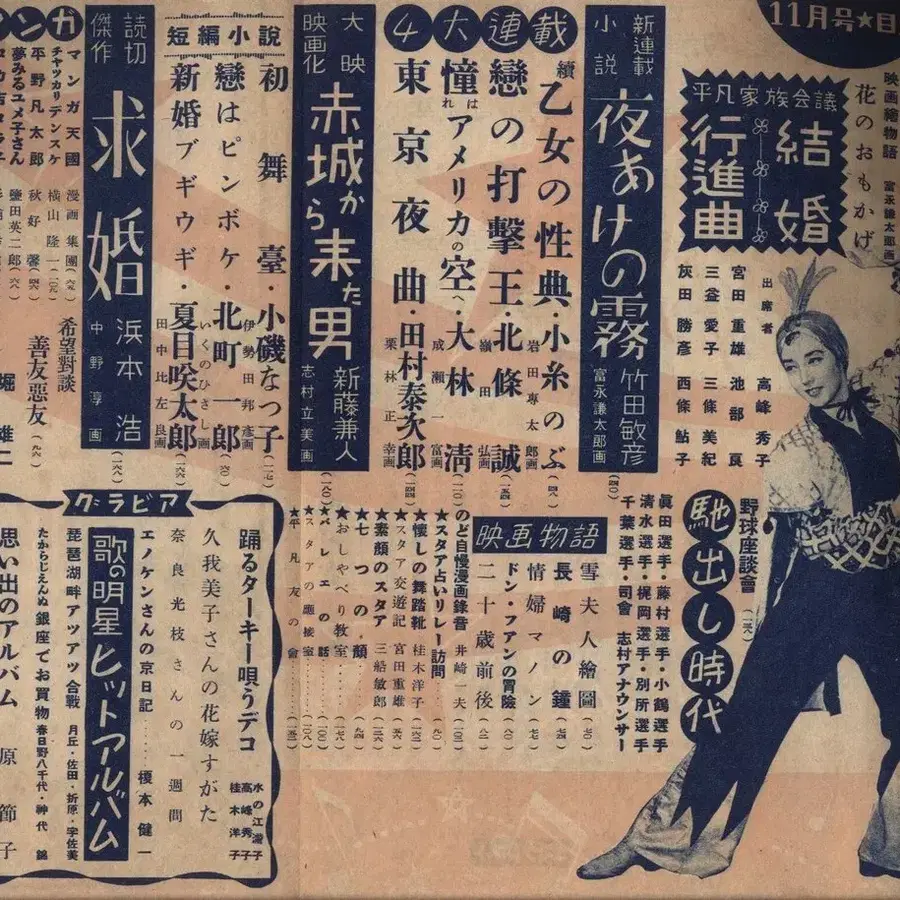 11月号★目
映画絵物語
花のおもかげ
富永謙太郎画
平凡家族会議
結婚
行進曲
出席者
高峰秀子
宮田重雄 池部良
三益愛子 三條美紀
灰田勝彦 西條鮎子
野球座談會
馳出し時代
眞田選手・藤村選手・小鶴選手
清水選手・梶岡選手・別所選手
千葉選手・司會 志村アナウンサー
新連載
小説
夜あけの霧
竹田敏彦
富永謙太郎画
4大連載
續乙女の性典・小糸のぶ
岩田専太郎画
戀の打撃王・北條誠
嶺田弘画
憧れはアメリカの空へ・大林清
成瀬一富画
東京夜曲・田村泰次郎
栗林正幸画
映画物語
雪夫人繪圖
長崎の鐘
情婦マノン
ドン・フアンの冒險
二十歳前後
のど自慢漫画錄音 井崎一夫
★スタア占いリレー訪問
★懐しの舞踏靴 桂木洋子
★スタア交遊記 宮田重雄
★素顔のスタア 三船敏郎
★七つの顔
★おしゃべり教室
★バレエの話
★スタアの應接室
★平凡友の會
大映
映画化
赤城から来た男
新藤兼人
志村立美画
短編小説
初舞臺・小磯なつ子
伊勢田邦彦画
戀はピンボケ・北町一郎
いくのひさし画
新婚ブギウギ・夏目咲太郎
田中比左良画
読切
傑作
求婚
浜本浩
中野淳画
ンガ
マンガ天國 漫画集團
チャッカリデンスケ 横山隆一
平野凡太郎 秋好馨
夢みるユメ子さん 鹽田英二郎
希望對談
善友惡友
堀雄二
グラビア
踊るターキー唄うデコ
水の江瀧子
高峰秀子
桂木洋子
久我美子さんの花嫁すがた
奈良光枝さんの一週間
エノケンさんの京日記……榎本健一
歌の明星ヒットアルバム
琵琶湖畔アツアツ合戰 月丘・佐田・折原・宇佐美
たからじえんぬ銀座でお買物 春日野八千代・神代錦
思い出のアルバム 原節子